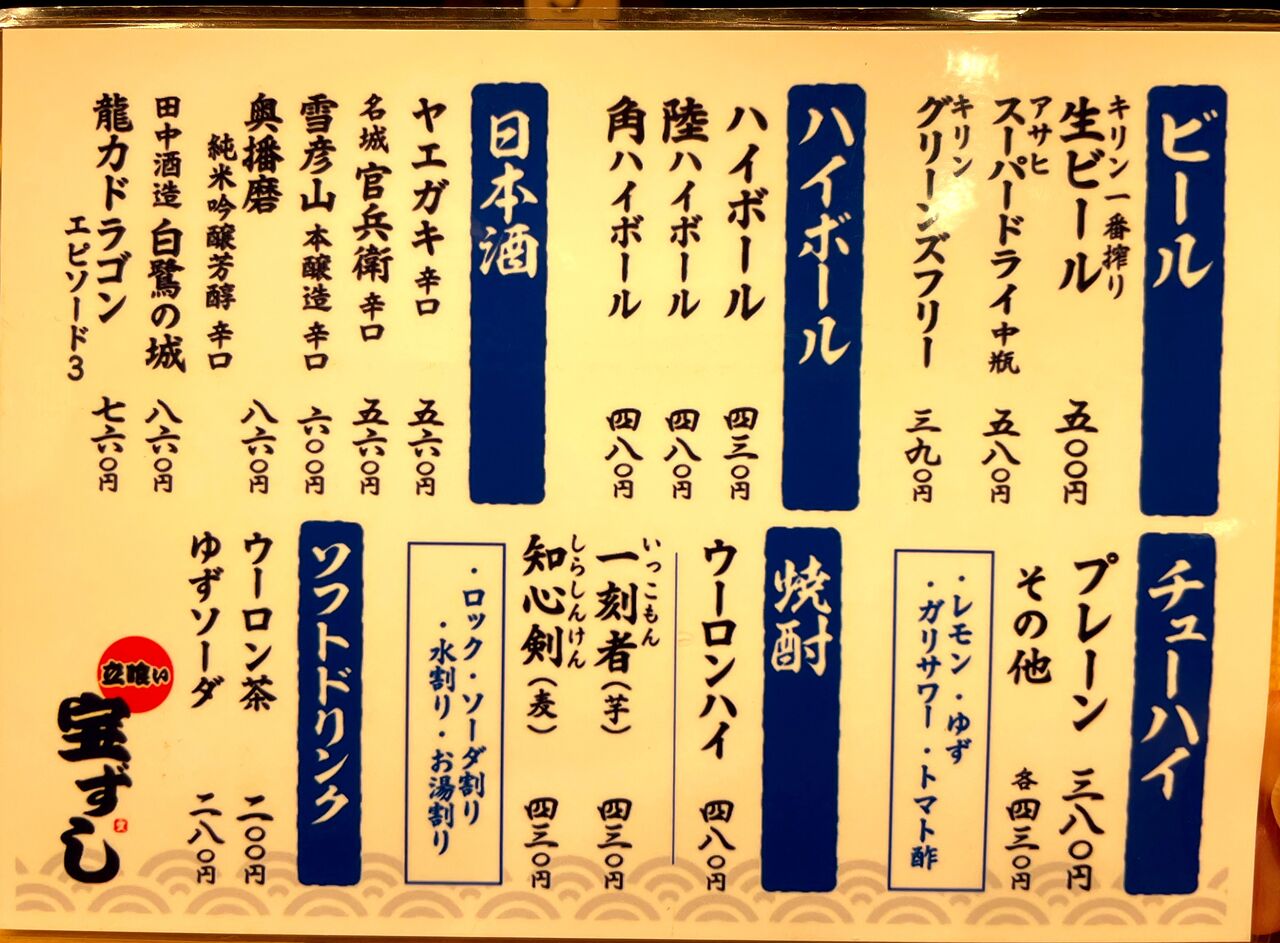 ビール
キリン一番搾り
生ビール 五〇〇円
アサヒ
スーパードライ 中瓶 五八〇円
キリン
グリーンズフリー 三九〇円
ハイボール
ハイボール 四三〇円
陸ハイボール 四八〇円
角ハイボール 四八〇円
日本酒
ヤエガキ 辛口 五六〇円
名城 官兵衛 辛口 五六〇円
雪彦山 本醸造 辛口 六〇〇円
奥播磨 八六〇円
純米吟醸芳醇 辛口
田中酒造 白鷺の城 八六〇円
龍力ドラゴン 七六〇円
エピソード3
チューハイ
プレーン 三八〇円
その他 各四三〇円
・レモン・ゆず
・ガリサワー・トマト酢
焼酎
ウーロンハイ 四八〇円
いっこもん
一刻者(芋) 四三〇円
しらしんけん
知心剣(麦) 四三〇円
・ロック・ソーダ割り
・水割り・お湯割り
ソフトドリンク
ウーロン茶 二〇〇円
ゆずソーダ 二八〇円
立喰い
宝ずし